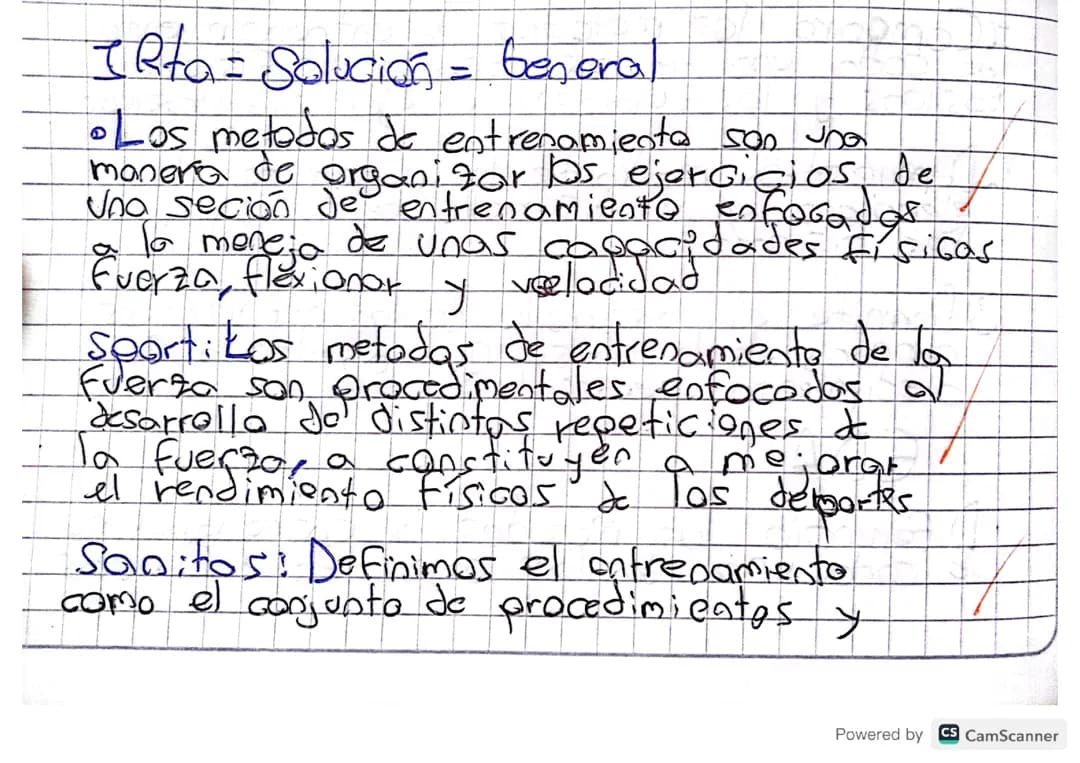 I Rta = Solución = General
• Los metodos de entrenamiento son una
manera de organizar los ejercicios de
una seción de entrenamiento enfocados
a la meneja de unas capacidades físicas
fuerza, flexionar y velocidad
Sport: Los metodos de entrenamiento de la
fuerza son procedimentales enfocodos al
desarrollo de distintas repeticiones de
la fuerza, a constituyen a mejorar
el rendimiento físicos de los deportes
Sanitos: Definimos el entrenamiento
como el conjunto de procedimientos y
Powered by CS CamScanner